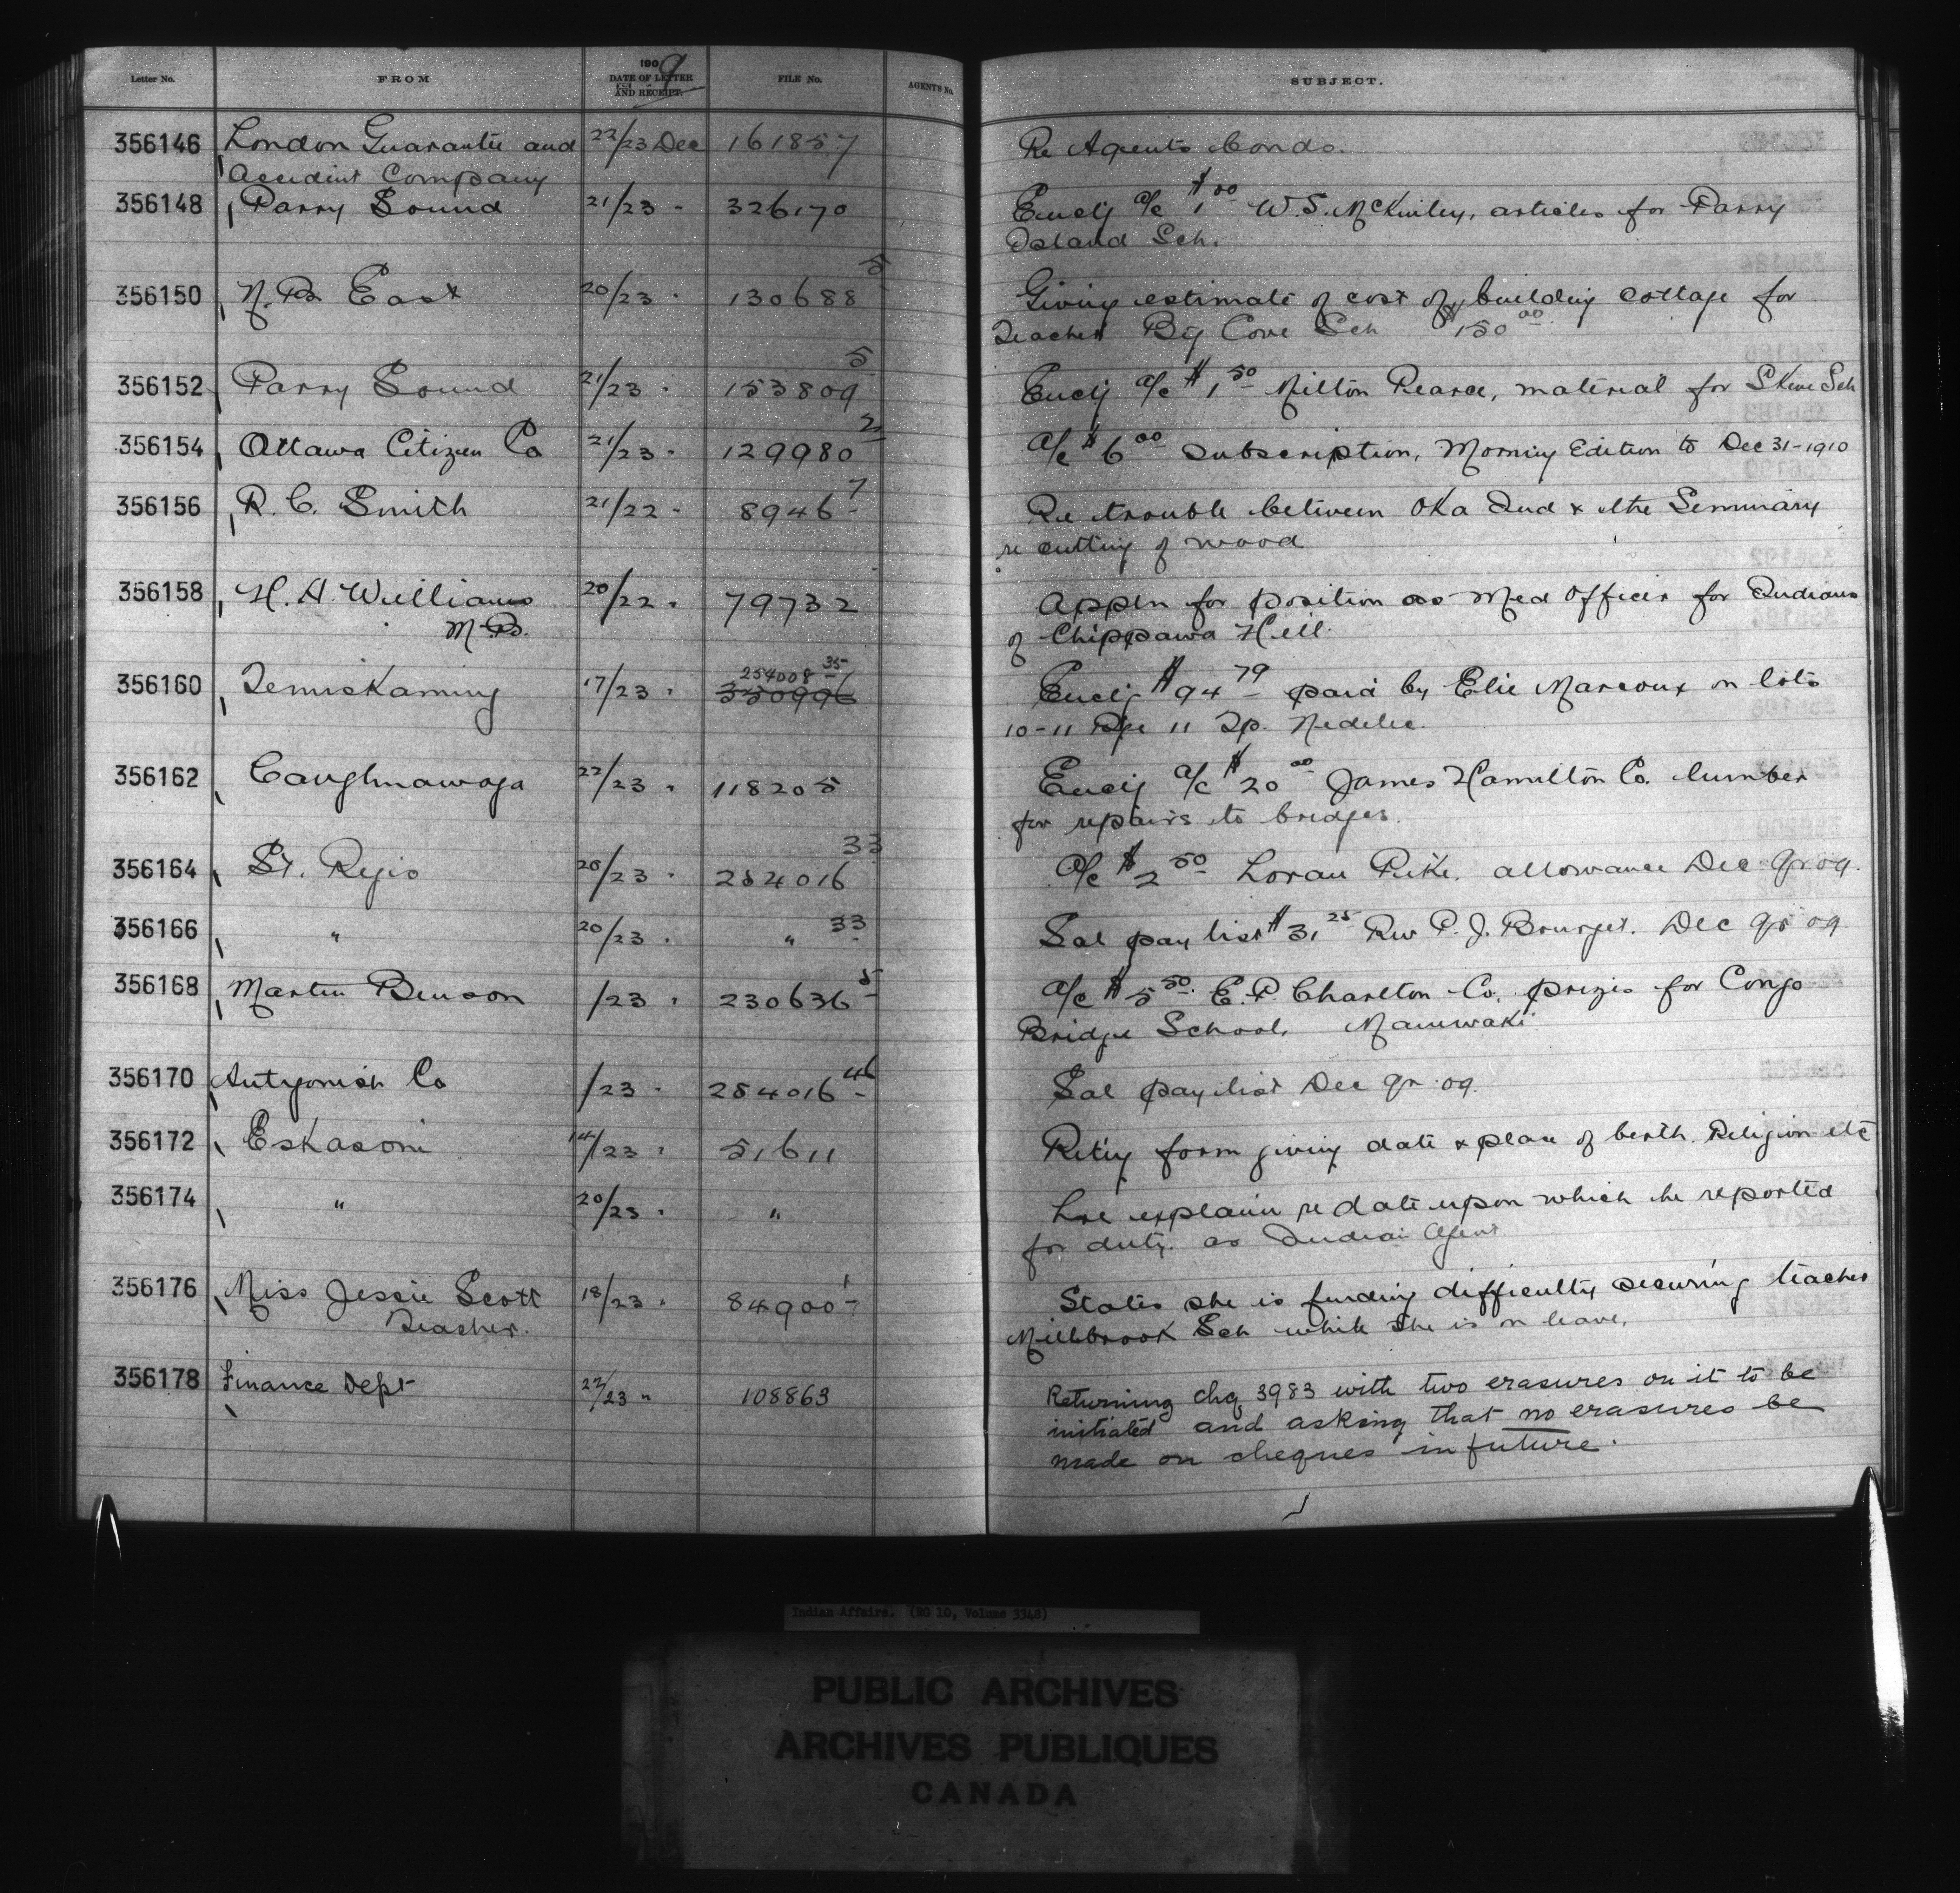 Letter No. FROM 1909 DATE OF LETTER AND RECEIPT. FILE No. AGENT'S No. SUBJECT.
356146 London Guarantee and 22/23 Dec 161857 Re Agents bonds.
Accident Company
356148 Parry Sound 21/23 " 326170 Enclg a/c $1.00 W.S. McKinley, articles for Parry
Island Sch.
356150 N.B. East 20/23 " 130688-5 Giving estimate of cost of building cottage for
Teacher Big Cove Sch $150.00
356152 Parry Sound 21/23 " 153809-5 Enclg a/c $1.50 Milton Pearce, material for Skene Sch
356154 Ottawa Citizen Co 21/23 " 129980-2 a/c $6.00 Subscription, Morning Edition to Dec 31-1910
356156 R.C. Smith 21/22 " 8946-7 Re trouble between Oka Ind & the Seminary
re cutting of wood
356158 H.A. Williams 20/22 " 79732 Appln for position as Med Officer for Indians
M.D. of Chippawa Hill.
356160 Temiskaming 17/23 " 254008-35 330996 Enclg $94.79 paid by Elie Marcoux on lots
10-11 Rge 11 Tp. Nedelec.
356162 Caughnawaga 22/23 " 118205 Enclg a/c $20.00 James Hamilton Co. lumber
for repairs to bridges.
356164 St. Regis 20/23 " 254016-33 a/c $2.50 Loran Pike. allowance Dec qr 09.
356166 " 20/23 " " 33 Sal pay list $31.25 Rev P.J. Bourget. Dec qr 09
356168 Martin Benson /23 " 230636-5 a/c $5.50 E.P. Charlton Co. prizes for Congo
Bridge School, Maniwaki
356170 Antigonish Co /23 " 254016-46 Sal pay list Dec qr 09.
356172 Eskasoni 14/23 " 51611 Retg form giving date & place of birth. Religion etc
356174 " 20/23 " " explain re date upon which he reported
for duty. as Indian Agent
356176 Miss Jessie Scott 18/23 " 84900-1 States she is finding difficulty securing teacher
Teacher. Millbrook Sch while she is on leave.
356178 Finance Dept 22/23 " 108863 Returning chq 3983 with two erasures on it to be
initiated and asking that no erasures be
made on cheques in future.
Indian Affairs. (RG 10, Volume 3348)
PUBLIC ARCHIVES
ARCHIVES PUBLIQUES
CANADA